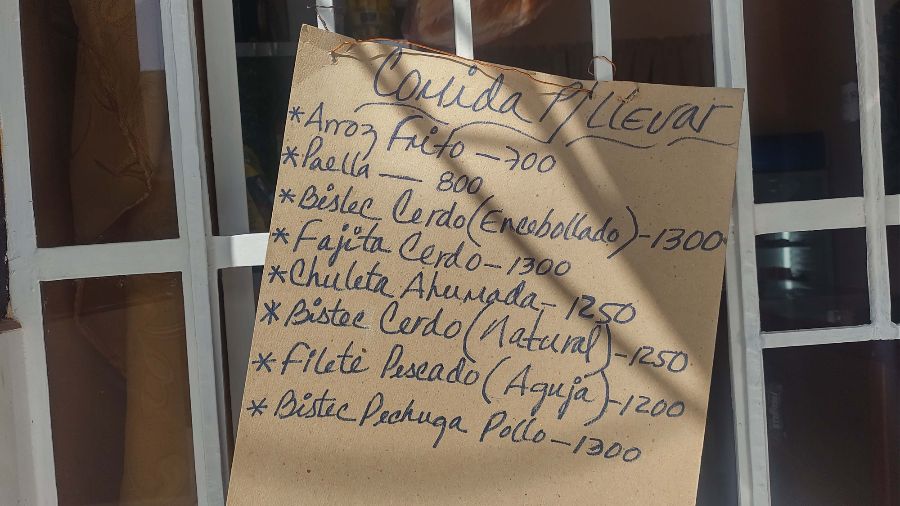 Comida P/LLEvar
*Arroz Frito — 700
*Paella — 800
*Bistec Cerdo (Encebollado) - 1300
*Fajita Cerdo - 1300
*Chuleta Ahumada - 1250
*Bistec Cerdo (Natural) - 1250
*Filete Pescado (Aguja) - 1200
*Bistec Pechuga Pollo - 1300